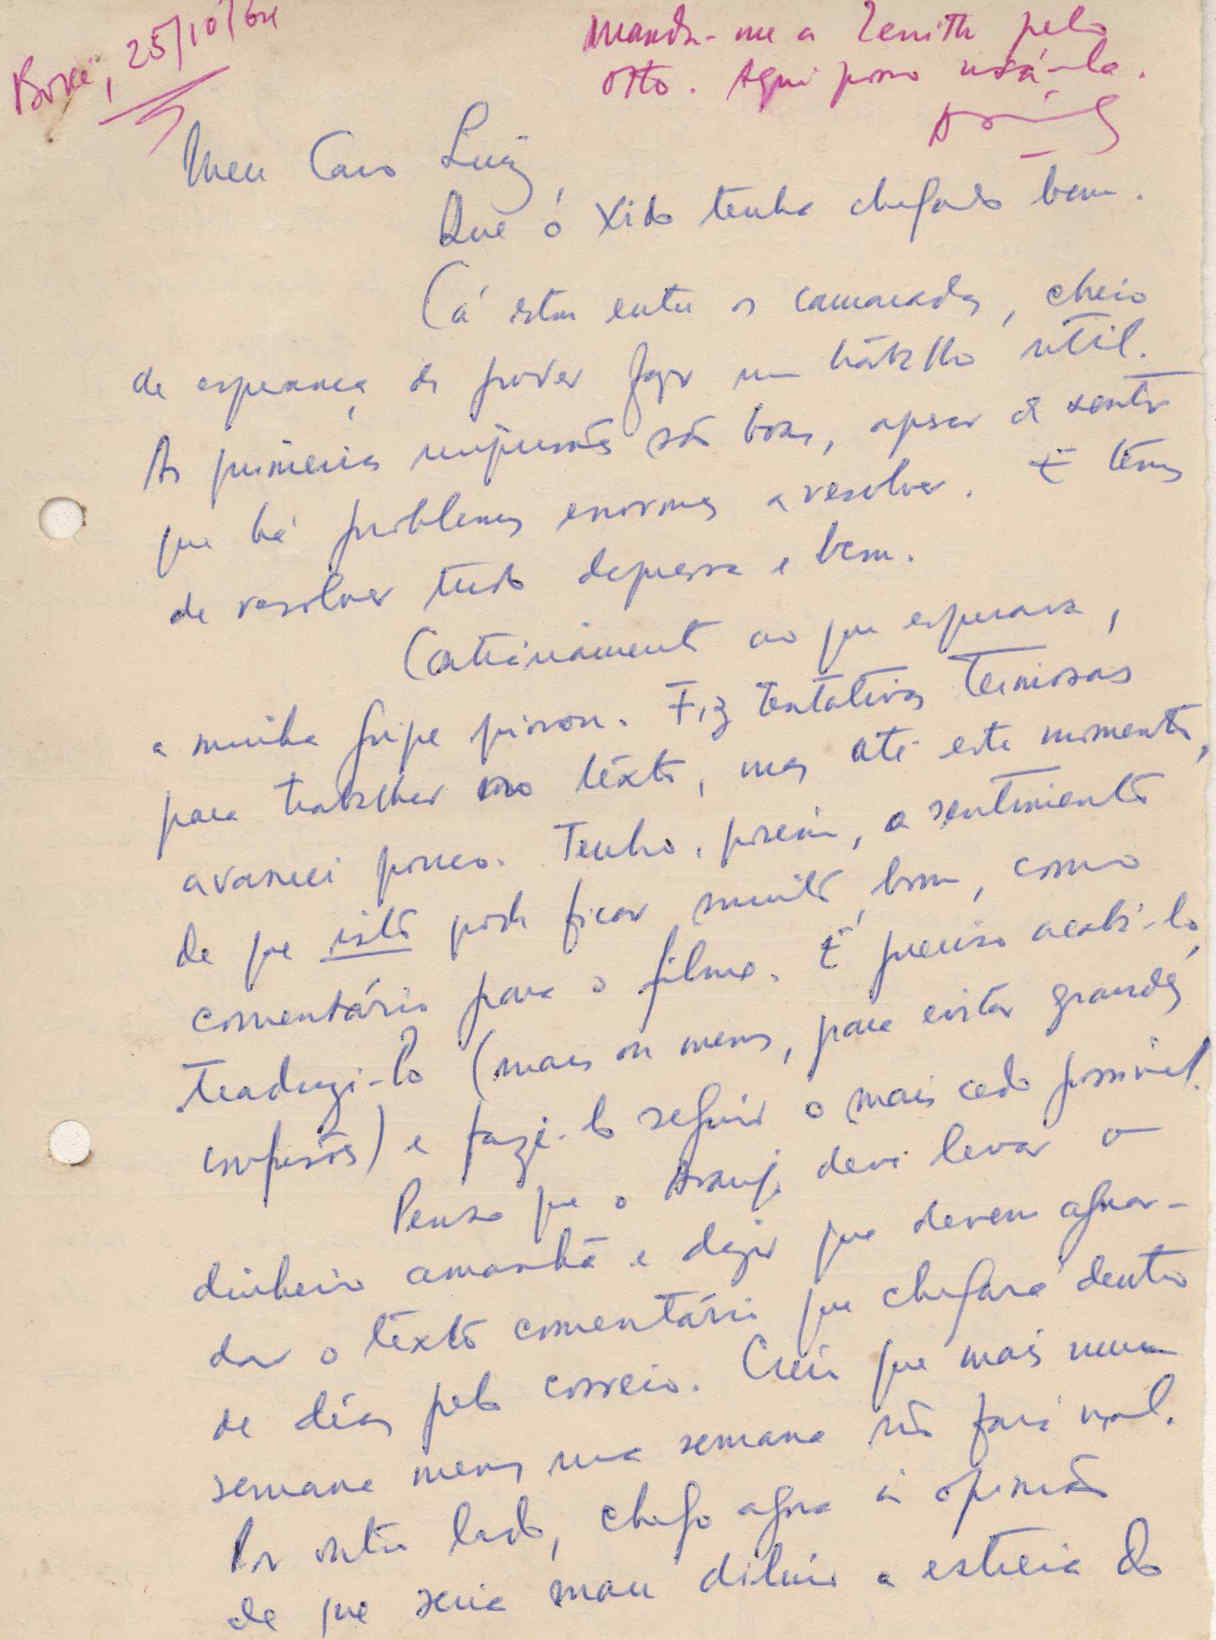 Boké, 25/10/64
Manda-me a Zenith pelo
Otto. Aqui posso usá-la.
Meu Caro Luiz
Que ó Xido tenha chegado bem.
Cá estou entre os camaradas, cheio
de esperança de poder fazer um trabalho util.
As primeiras impressões são boas, apesar de sentir
que há problemas enormes a resolver. E temos
de resolver tudo depressa e bem.
Contrariamente ao que esperava,
a minha gripe piorou. Fiz tentativas teimosas
para trabalhar no têxto, mas até este momento,
avancei pouco. Tenho, porém, o sentimento
de que isto pode ficar muito bom, como
comentário para o filme. É preciso acabá-lo,
traduzi-lo (mais ou menos, para evitar grandes
confusões) e fazê-lo seguir o mais cedo possivel.
Penso que o Araujo deve levar o
dinheiro amanhã e dizer que devem aguar-
dar o têxto comentário que chegará dentro
de dias pelo correio. Creio que mais uma
semana menos uma semana não fará mal.
Por outro lado, chego agora à opinião
de que seria mau diluir a estreia do